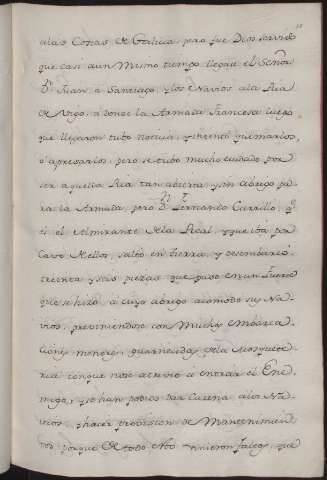 a las Costas de Galicia, pero fue Dios servido
que casi a un mismo tiempo llegase el Señor
Dn. Juan a Santiago, y los Navios a la Ria
de Vigo, a donde la Armada Francesa luego
que llegaron tubo noticia, y intentó quemarlos,
ó apresarlos, pero se tubo mucho cuidado por
ser aquella Ria tan abierta y sin abrigo pa
ra la Armada, pero Dn. Fernando Carrillo, qe.
es el Almirante de la Real, y que iba por
Cavo de ellos, saltó en tierra, y desembarcó
treinta y seis piezas que puso en un Fuerte
que se hizo, a cuyo abrigo acomodo sus Na
vios, previniendose con Muchas embarca
ciones menores, guarnecidas de la Mosquete
ria conque no se atrevio a entrar el Ene
migo, y se han podido dar Carena a los Na
vios, y hacer provision de Mantenimien
tos, porque de todo esto vinieron faltos, que